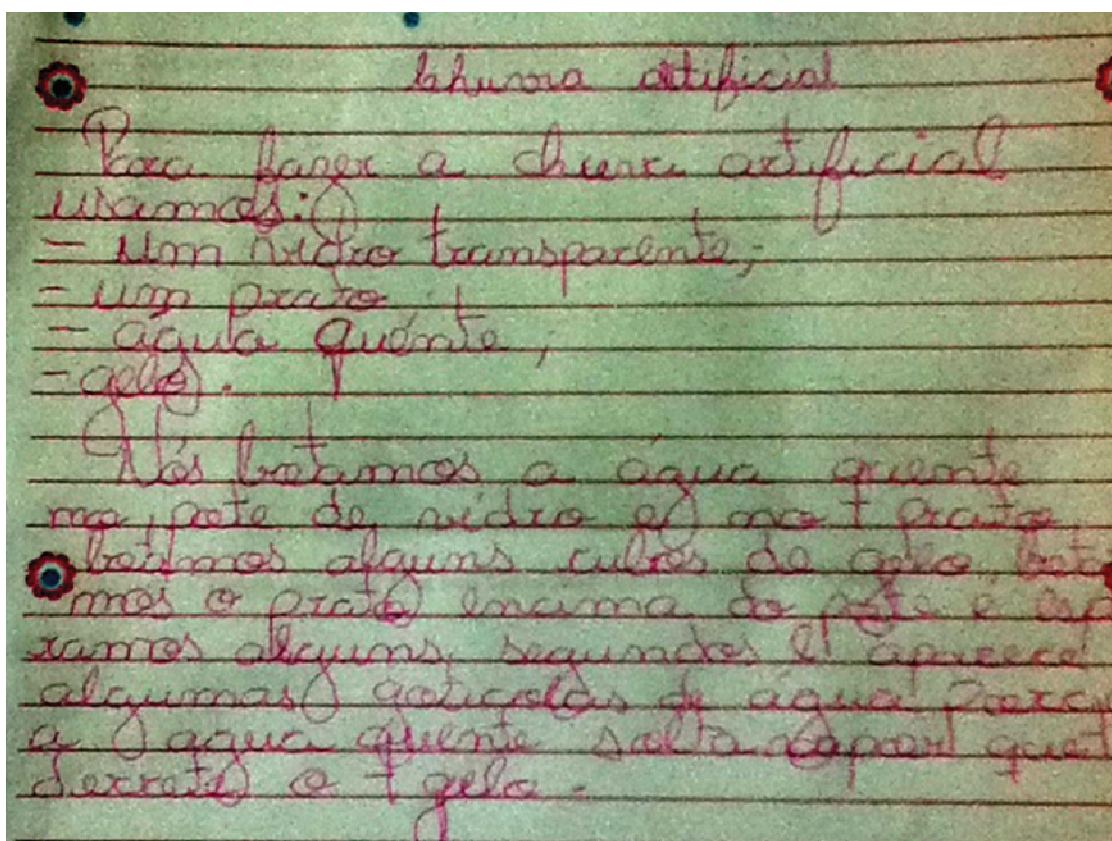 Chuva artificial
Para fazer a chuva artificial
usamos:
- um vidro transparente;
- um prato,
- água quente;
- gelo.
Nós botamos a água quente
no pote de vidro e no prato
botamos alguns cubos de gelo, bota
mos o prato encima do pote e esp
ramos alguns segundos e aparece
algumas goticolas de água Porc
a água quente solta vapor que
derrete o gelo.